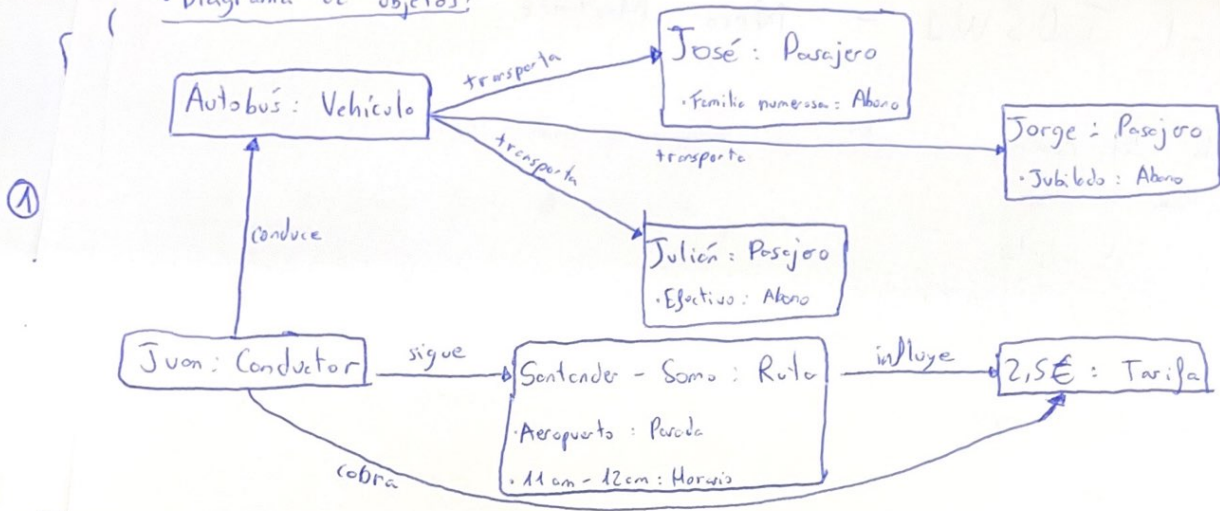 · Diagrama de objetos:
①
Autobús : Vehículo
transporta
José : Pasajero
· Familia numerosa : Abono
transporta
Jorge : Pasajero
· Jubilado : Abono
transporta
Julián : Pasajero
· Efectivo : Abono
conduce
Juan : Conductor
sigue
Santander - Somo : Ruta
· Aeropuerto : Parada
· 11am - 12am : Horario
influye
2,5€ : Tarifa
cobra